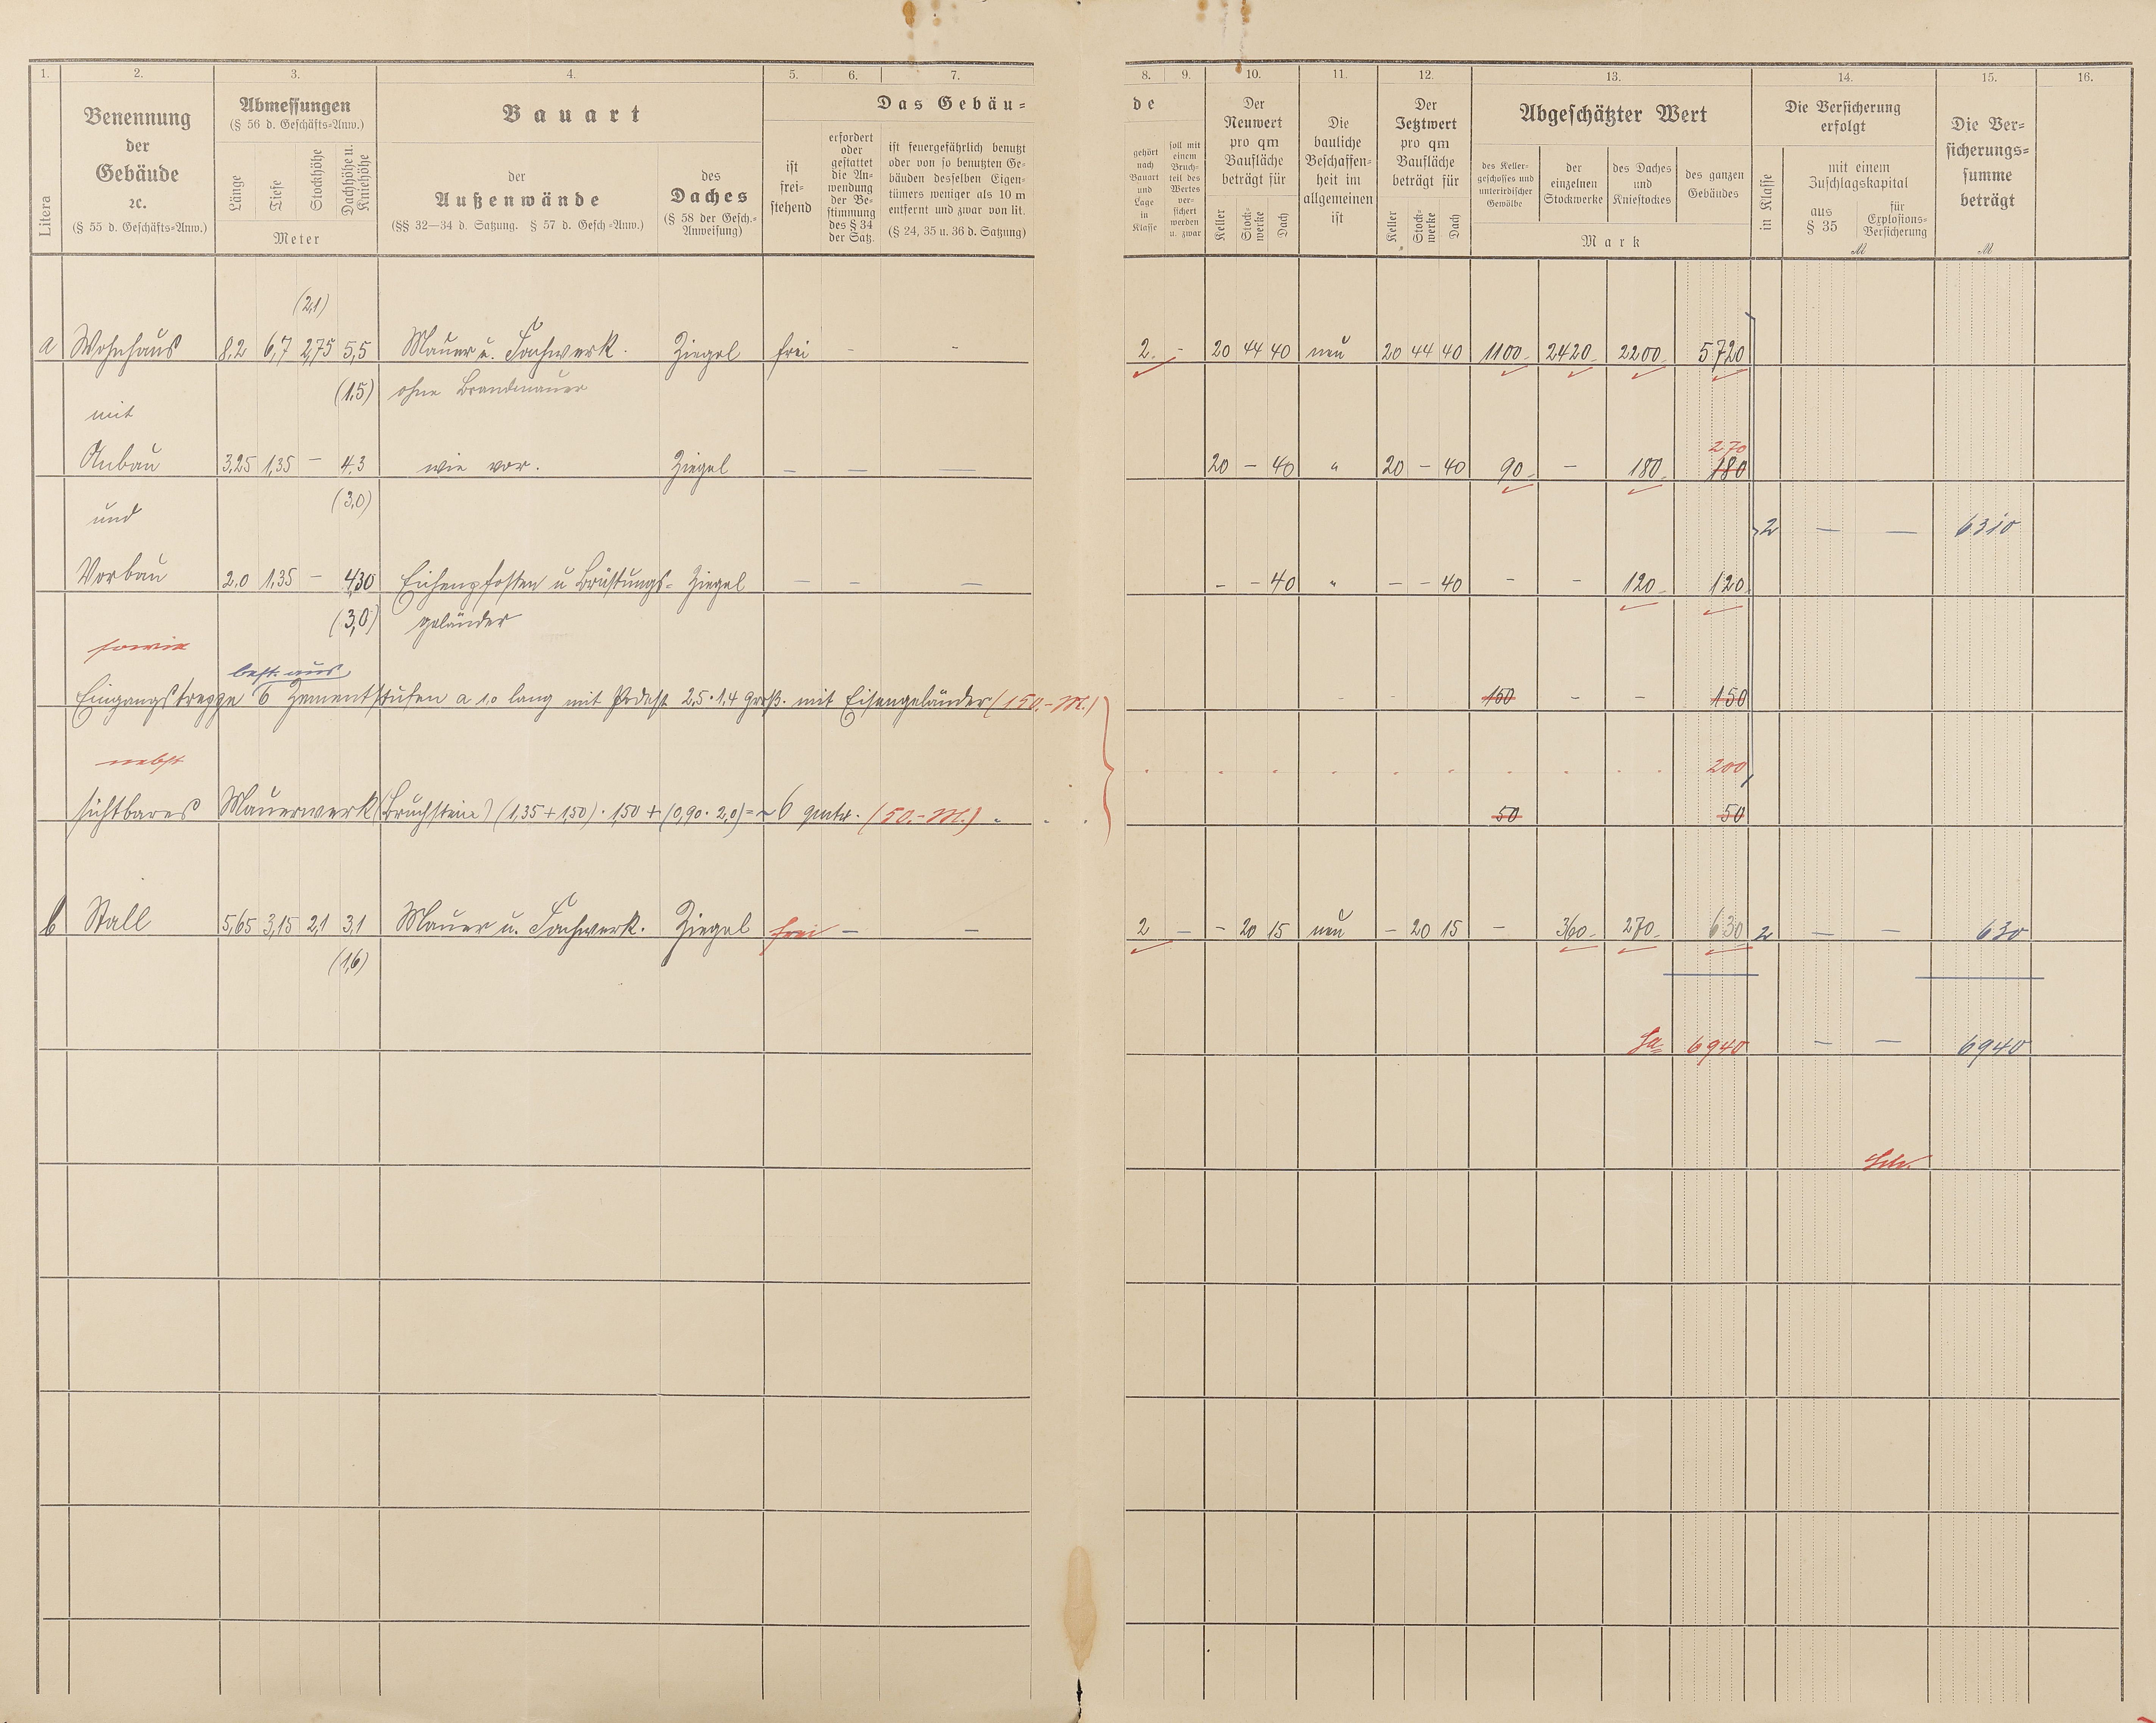 1. 2. 3. 4. 5. 6. 7. 8. 9. 10. 11. 12. 13. 14. 15. 16.
Litera
Benennung
der
Gebäude
ꝛc.
(§ 55 d. Geschäfts=Anw.)
Abmessungen
(§ 56 d. Geschäfts=Anw.)
Länge
Tiefe
Stockhöhe
Dachhöhe u.
Kniehöhe
Meter
Bauart
der
Außenwände
(§§ 32—34 d. Satzung. § 57 d. Gesch=Anw.)
des
Daches
(§ 58 der Gesch.=
Anweisung)
Das Gebäu=
ist
frei=
stehend
erfordert
oder
gestattet
die An=
wendung
der Be=
stimmung
des § 34
der Satz.
ist feuergefährlich benutzt
oder von so benutzten Ge=
bäuden desselben Eigen=
tümers weniger als 10 m
entfernt und zwar von lit.
(§ 24, 35 u. 36 d. Satzung)
de
gehört
nach
Bauart
und
Lage
in
Klasse
soll mit
einem
Bruch=
teil des
Wertes
ver=
sichert
werden
u. zwar
Der
Neuwert
pro qm
Baufläche
beträgt für
Keller
Stock=
werke
Dach
Die
bauliche
Beschaffen=
heit im
allgemeinen
ist
Der
Jetztwert
pro qm
Baufläche
beträgt für
Keller
Stock=
werke
Dach
Abgeschätzter Wert
des Keller=
geschosses und
unterirdischer
Gewölbe
der
einzelnen
Stockwerke
des Daches
und
Kniestockes
des ganzen
Gebäudes
Mark
Die Versicherung
erfolgt
in Klasse
mit einem
Zuschlagskapital
aus
§ 35
für
Explosions=
Versicherung
M
Die Ver=
sicherungs=
summe
beträgt
M
(2,1)
a Wohnhaus 8,2 6,7 2,75 5,5 Mauer u. Fachwerk. Ziegel frei - - 2. - 20 44 40 neu 20 44 40 1100 2420 2200 5720
(1,5) ohne Brandmauer
mit
270
Anbau 3,25 1,35 - 4,3 wie vor. Ziegel - - - 20 - 40 " 20 - 40 90 - 180 180
(3,0)
und
2 - - 6310
Vorbau 2,0 1,35 - 4,30 Eichenpfosten u Brüstungs= Ziegel - - - - - 40 " - - 40 - - 120 120
(3,0) geländer
sowie
best. aus
Eingangstreppe 6 Zementstufen a 1,0 lang mit Podest 2,5·1,4 groß. mit Eisengeländer (150.- M.) - - 150 - - 150
nebst
200
sichtbares Mauerwerk (Bruchstein) (1,35+1,50)·1,50+(0,90·2,0)=~6 qmtr. (50.- M.) 50 50
b Stall 5,65 3,15 2,1 3,1 Mauer u. Fachwerk. Ziegel frei - - 2 - - 20 15 neu - 20 15 - 360 270 630 2 - - 630
(1,6)
Sa 6940 - - 6940